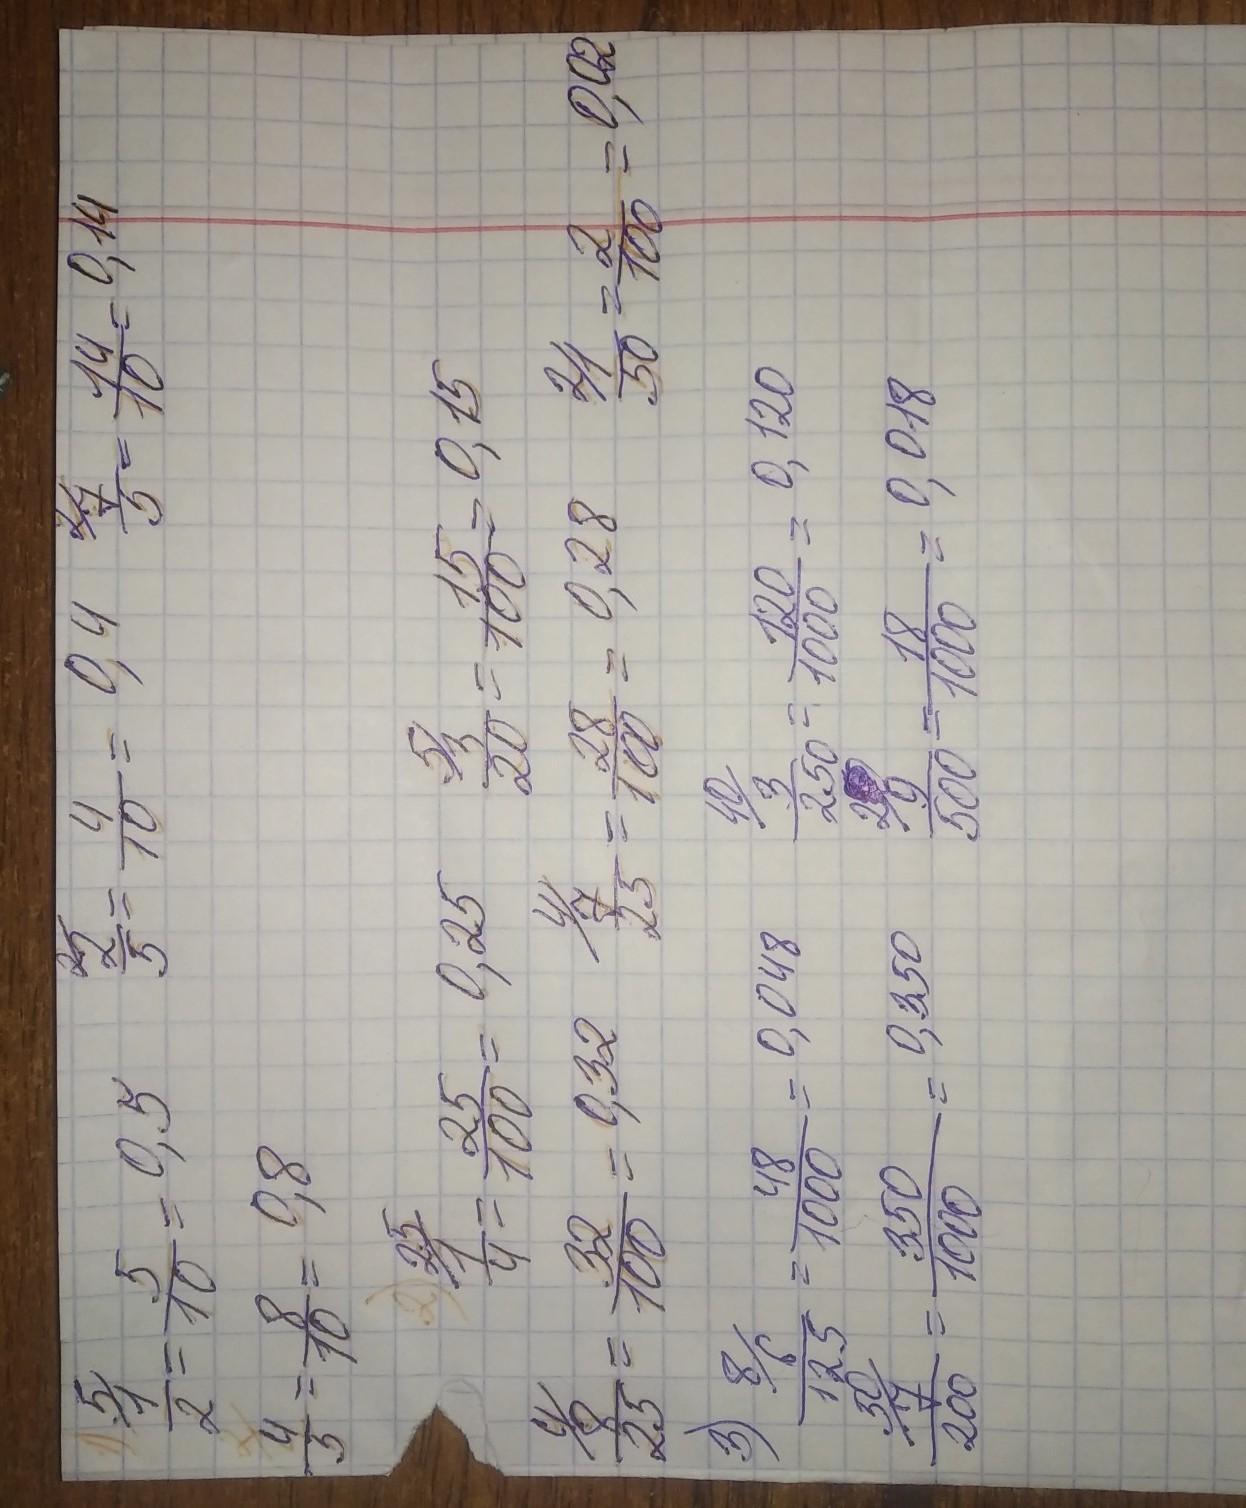 1) 5/ 1/2 = 5/10 = 0,5 2/5 = 4/10 = 0,4 2/ 7/5 = 14/10 = 0,14
2/ 4/5 = 8/10 = 0,8
2) 25/ 1/4 = 25/100 = 0,25 5/ 3/20 = 15/100 = 0,15
4/ 8/25 = 32/100 = 0,32 4/ 7/25 = 28/100 = 0,28 2/ 1/50 = 2/100 = 0,02
3) 8/ 6/125 = 48/1000 = 0,048 40/ 3/250 = 120/1000 = 0,120
50/ 7/200 = 350/1000 = 0,350 2/ 9/500 = 18/1000 = 0,018